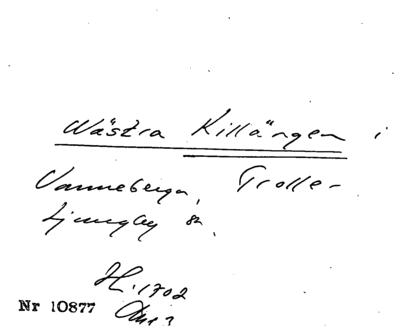 Wästra Killängen i
Vanneberga, Trolle-
Ljungby sn.
H. 1702
Nr 10877